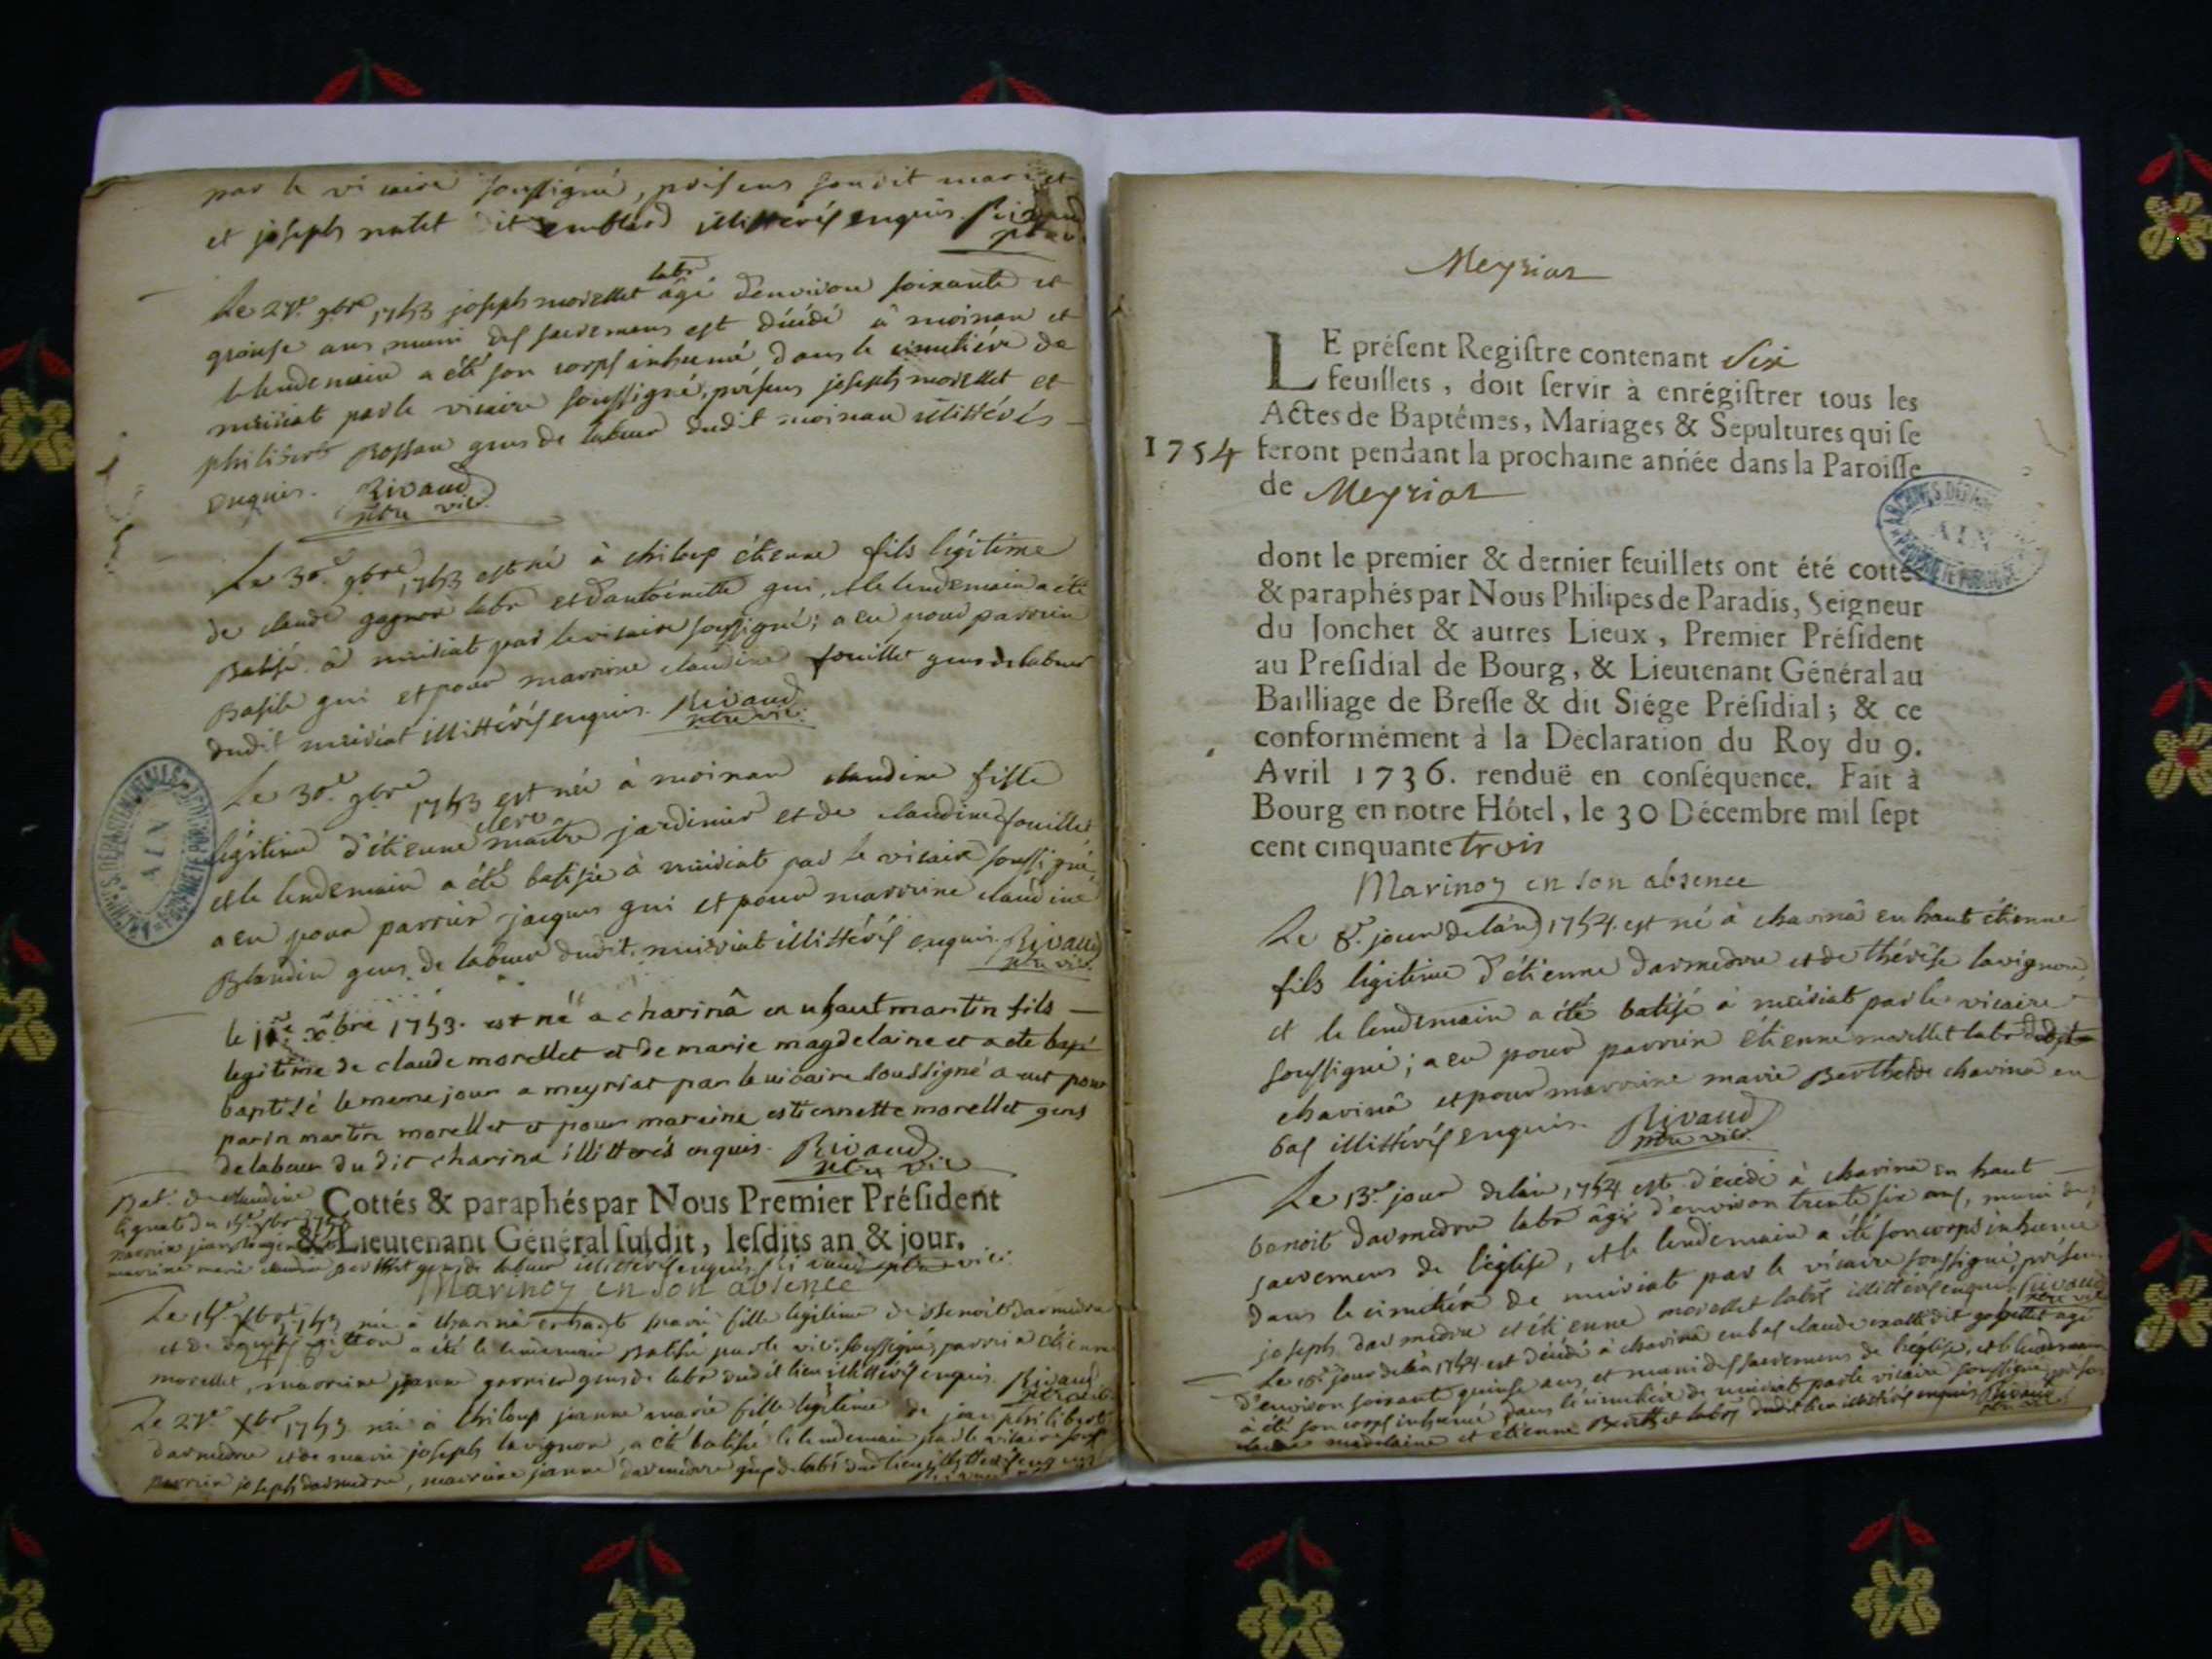 par le vicaire soussigné, présens soudit mari et
et joseph mitet dit emblard illittérés enquis. Rivaud
ptre vic.
Le 27e 9bre 1753 joseph morellet labr âgé d'environ soixante et
quinse ans, muni des sacremens est décédé à moinan et
le lendemain a été son corps inhumé dans le cimetiére de
meiriat par le vicaire soussigné, présens joseph morellet et
philibert Rossan gens de labeur dudit moinan illittérés
enquis. Rivaud
ptre vic.
Le 30e 9bre 1753 est né à chiloup étienne fils légitime
de claude gagnor labr et d'antoinette gui, et le lendemain a été
Batisé à meiriat par le vicaire soussigné; a eu pour parrein
Basile gui et pour marreine claudine fouillet gens de labeur
dudit meiriat illittérés enquis. Rivaud
ptre vic.
Le 30e 9bre 1753 est née à moinan claudine fille
légitime d'étienne clerc maitre jardinier et de claudine fouillet
et le lendemain a été batisée à meiriat par le vicaire soussigné,
a eu pour parrein jacques gui et pour marreine claudine
Blandin gens de labeur dudit meiriat illittérés enquis. Rivaud
ptre vic.
le 11e xbre 1753. est né a charinâ en uhaut martin fils
legitime de claude morellet et de marie magdelaine et a ete bapt
baptisé le meme jour a meyriat par le vicaire soussigné a eut pour
parin martin morellet et pour mareine estiennette morellet gens
de labeur du dit charina illitterés enquis. Rivaud
ptre vic
Bat. de claudine
Cottés & paraphés par Nous Premier Président
& Lieutenant Général susdit, lesdits an & jour.
marreine marie perthet gens de labeur illittérés enquis Rivaud ptre vic.
Marinoz en son absence
Le 15e xbre 1753 née à charinâ en haut marie fille légitime de Benoit darmedru
et de a été le lendemain Batisée par le vic. soussigné, parrein étienne
morellet, marreine jeanne garnier gens de labr dudit lieu illittérés enquis. Rivaud
ptre vic.
Le 27e xbre 1753 née à chiloup jeanne marie fille légitime de jean philibert
darmedru et de marie joseph lavignon, a été batisée le lendemain par le vicaire souss
parrein joseph darmedru, marreine jeanne darmedru gens de labr dud lieu illittérés enquis
Meyriat
LE présent Registre contenant Six
feuillets, doit servir à enrégistrer tous les
Actes de Baptêmes, Mariages & Sépultures qui se
1754 feront pendant la prochaine année dans la Paroisse
de Meyriat
ARCHIVES DÉPARTEMENTALES
AIN
dont le premier & dernier feuillets ont été cottés
& paraphés par Nous Philipes de Paradis, Seigneur
du Jonchet & autres Lieux, Premier Président
au Presidial de Bourg, & Lieutenant Général au
Bailliage de Bresse & dit Siége Présidial; & ce
conformément à la Déclaration du Roy du 9.
Avril 1736. renduë en conséquence. Fait à
Bourg en notre Hôtel, le 30 Décembre mil sept
cent cinquante trois
Marinoz en son absence
Le 8e jour de l'an 1754 est né à charinâ en haut étienne
fils légitime d'étienne darmedru et de thérèse lavignon
et le lendemain a été batisé à meiriat par le vicaire
soussigné; a eu pour parrein étienne morellet labr dudit
charinâ et pour marreine marie Berthet de charinâ en
bas illittérés enquis. Rivaud
ptre vic.
Le 13e jour de l'an 1754 est décédé à charinâ en haut
benoit darmedru labr âgé d'environ trente six ans, muni des
sacremens de l'église, et le lendemain a été son corps inhumé
dans le cimetiére de meiriat par le vicaire soussigné, présens
joseph darmedru et étienne morellet labrs illittérés enquis Rivaud
ptre vic
Le 18e jour de l'an 1754 est décédé à charinâ en bas claude dit gobellet agé
d'environ soixante quinse ans et muni des sacremens de l'église, et le lendemain
à été son corps inhumé dans le cimetiére de meiriat par le vicaire soussigné présens
claude madelaine et etienne Berthet labrs dudit lieu illittérés enquis Rivaud
ptre vic.